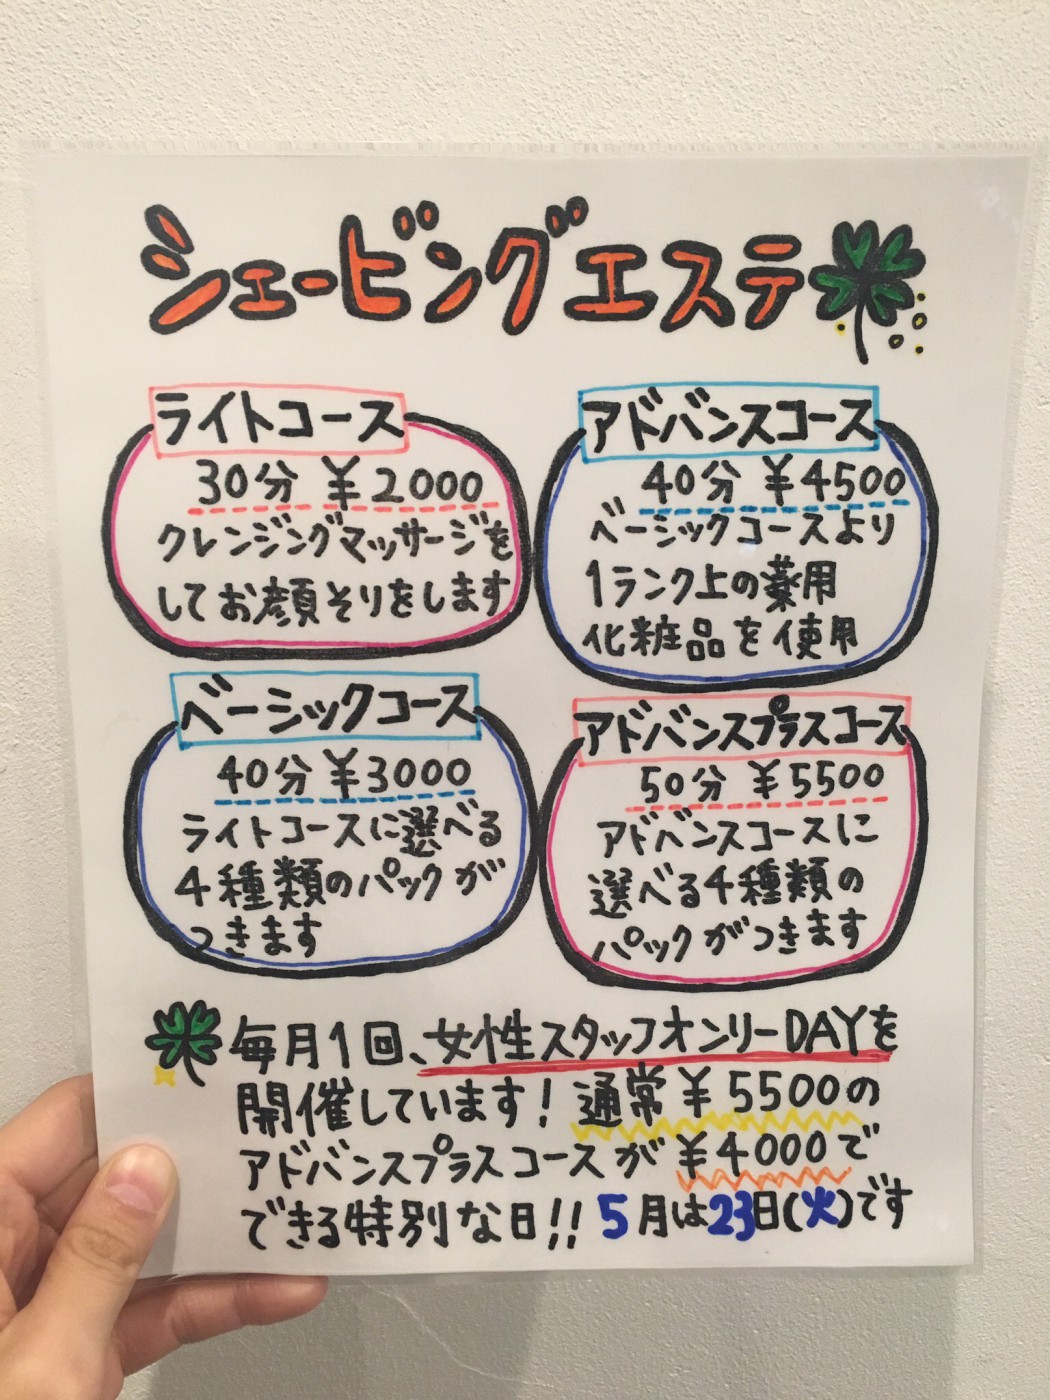 シェービングエステ
ライトコース
30分 ¥2000
クレンジングマッサージを
してお顔そりをします
アドバンスコース
40分 ¥4500
ベーシックコースより
1ランク上の薬用
化粧品を使用
ベーシックコース
40分 ¥3000
ライトコースに選べる
4種類のパックが
つきます
アドバンスプラスコース
50分 ¥5500
アドバンスコースに
選べる4種類の
パックがつきます
毎月1回、女性スタッフオンリーDAYを
開催しています! 通常¥5500の
アドバンスプラスコースが¥4000で
できる特別な日!! 5月は23日(火)です